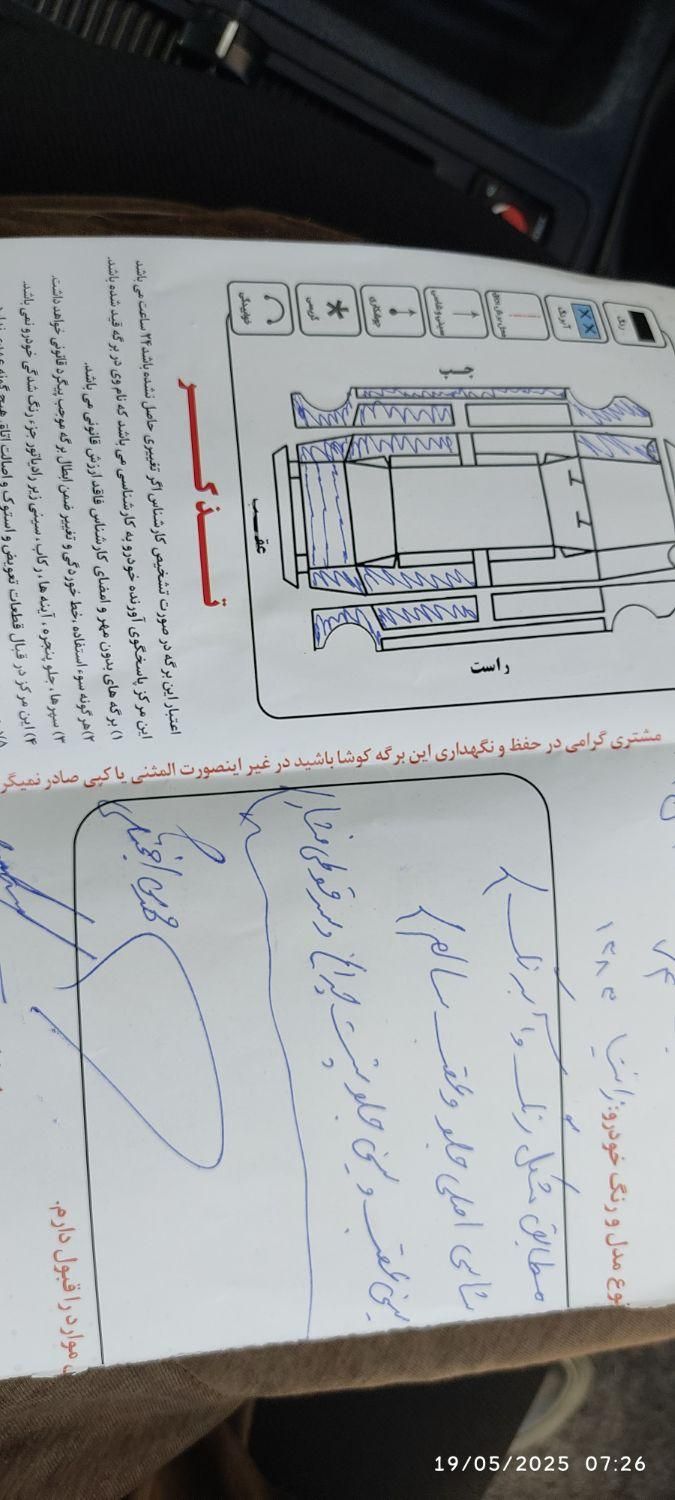 رنگ
آبرنگ
خوابیدگی
چپ
عقب
راست
تذکر
اعتبار این برگه در صورت تشخیص کارشناس اگر تغییری حاصل نشده باشد ۲۴ ساعت می باشد
این مرکز پاسخگوی آورنده خودرو به کارشناسی می باشد که نام وی در برگه قید شده باشد.
۱) برگه های بدون مهر و امضای کارشناس فاقد ارزش قانونی می باشد.
۲) هر گونه سوء استفاده ،خط خوردگی و تغییر ضمن ابطال برگه موجب پیگرد قانونی خواهد داشت.
۳) سپرها ، جلو پنجره ، آینه ها ، رکاب ، سینی زیر رادیاتور جزء رنگ شدگی خودرو نمی باشد.
۴) این مرکز در قبال قطعات تعویض و استوک و اصالت اتاق هیچ گونه
مشتری گرامی در حفظ و نگهداری این برگه کوشا باشید در غیر اینصورت المثنی یا کپی صادر نمیگر
نوع مدل و رنگ خودرو: زانتیا ۱۳۸۳
مطابق شکل رنگ و آبرنگ
شاسی اصلی جلو و عقب سالم
سینی عقب و سینی جلو پشت چراغ
موارد را قبول دارم.
19/05/2025 07:26